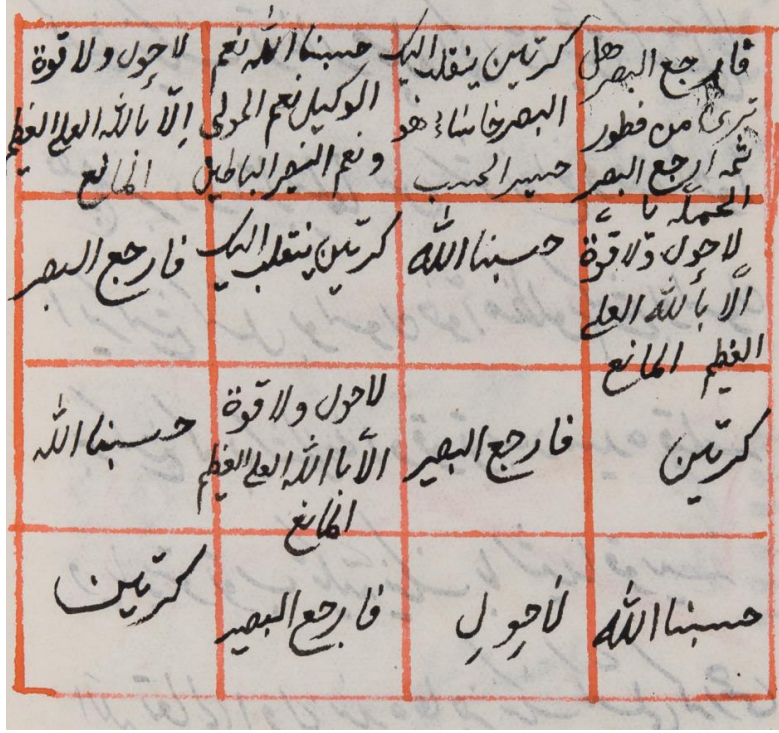 فارجع البصر هل
ترى من فطور
ثمه ارجع البصر
كرتين ينقلب اليك
البصر خاسئا هو
حسير الحسب
حسبنا الله نعم
الوكيل نعم المولى
ونعم النصير الباطين
لا حول ولا قوة
إلا بالله العلي العظيم
المانع
الحمله يا
لا حول ولا قوة
الا بالله العلي
العظيم المانع
حسبنا الله
كرتين ينقلب اليك
فارجع البصر
كرتين
فارجع البصير
لا حول ولا قوة
الا باالله العلي العظيم
المانع
حسبنا الله
حسبنا الله
لاحول
فارجع البصير
كرتين